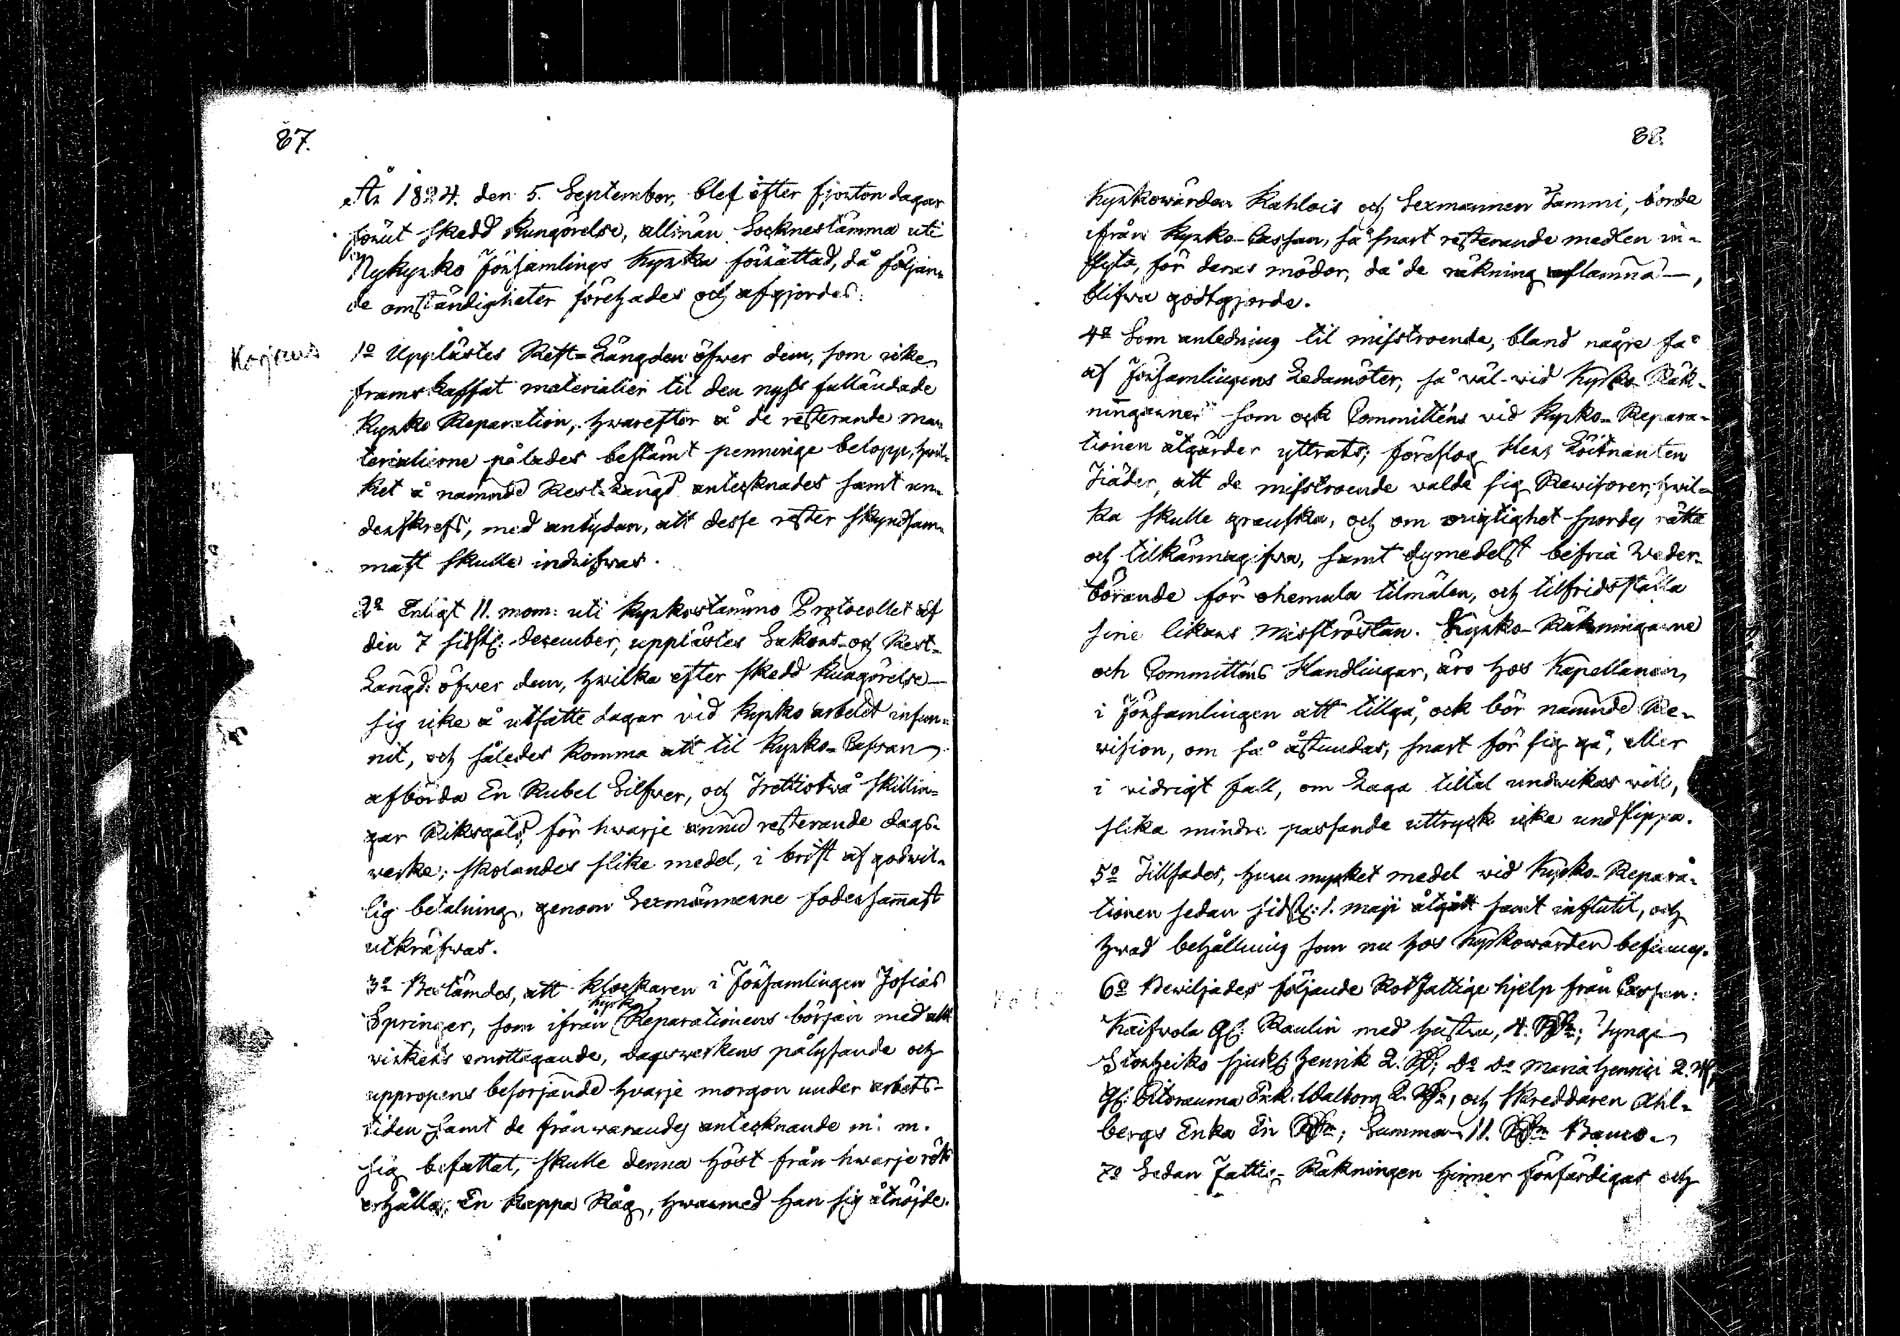 87.
År 1824. den 5. September, blef efter fjorton dagar
förut skedd kungörelse, allmän Socknestämma uti
Nykyrko Församlings kyrka förrättad, då följan-
de omständigheter företogades och afgjordes:
Korjaus
1o Upplästes Rest-Längden öfwer dem, som icke
framskaffat materialier til den nyss fulländade
Kyrko Reparation, hwarefter å de resterande ma-
terialierne pålades bestämt penninge belopp, hwil-
ket å nämnde Rest-Längd antecknades samt un-
derskrefs, med antydan, att desse rester skyndsam-
mast skulle indrifwas.
2o Enligt 11. mom: uti kyrkostämmo Protocollet af
den 7 sidstl: December, upplästes Sakörs- och Rest-
Längd: öfwer dem, hwilka efter skedd kungörelse
sig icke å utsatte dagar vid kyrko arbetet infun-
nit, och således komma att til Kyrko-Cassan
afbörda En Rubel Silfwer, och Trettiotwå skillin-
gar Riksgäld, för hwarje ännu resterande dags-
werke; skolandes slike medel, i brist af godwil-
lig betalning, genom Sexmännerne fodersammast
utkräfwas.
3o Bestämdes, att klockaren i Församlingen Josias
Springer, som ifrån kyrko Reparationens början med
virkets emottagande, dagswerkens pålysande och
uppropens besörjande hvarje morgon under arbets-
tiden samt de frånwarandes antecknande m. m.
sig befattat, skulle denna höst från hwarje rök
erhålla En kappa Råg, hwarmed han sig åtnöjde.
88.
Kyrkowärden Kahlois och Sexmannen Tammi, borde
ifrån Kyrko-Cassan, så snart resterande medlen in-
flyta, för deras mödor, då de räkning aflämna,
blifwa godtgjorde.
4o Som anledning til misstroende, bland några få
af Församlingens Ledamöter, så väl wid Kyrko-Räk-
ningarne som ock Committéns vid Kyrko-Repara-
tionen åtgärder yttrats; föreslog Herr Löitnanten
att de misstroende valde sig Revisorer, hwil-
ka skulle granska, och om origtighet spordes rätta
och tilkännagifwa, samt dymedelst befria Weder-
börande för ohemula tilmälen, och tilfridsställa
sine likars misströstan. Kyrko-Räkningarne
och Committéns Handlingar, äro hos Kapellanen
i Församlingen att tillgå, ock bör nämnde Re-
vision, om så åstundas, snart för sig gå, eller
i vidrigt fall, om Laga tilltal undwikas will,
slika mindre passande uttryck icke undslippa.
5o Tillsades, huru mycket medel wid Kyrko-Repara-
tionen sedan sidstl: 1. maji åtgått samt influtit, och
hwad behållning som nu hos kyrkowärden befinnes.
6o Bewiljades följande Rotfattige hjelp från Cassan:
Kaifwola Raulin med hustru, 4. Tynge
Storheikå sjukl. Henrik 2. Do Do Maria Henrici 2.
Enk. Walborg 2. och Skreddaren Ahl-
bergs Enka En Summa 11. Banco.
7o Sedan Fattig-Räkningen hinner förfärdigas och